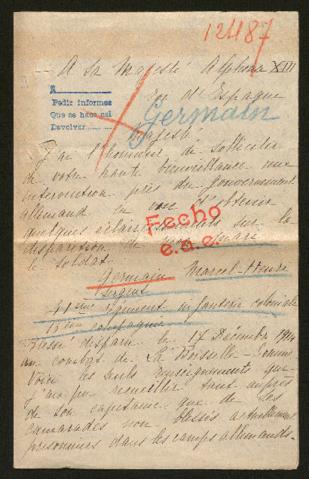 12487
A Sa Majesté Alphonse XIII
roi d'Espagne
A
Pedir informes
Que se hace así
Devolver
Germain
Majesté
J'ai l'honneur de solliciter
de votre haute bienveillance une
intervention près du Gouvernement
allemand en vue d'obtenir
quelques éclaircissements sur la
disparition de mon mari
Fecho
e.a.e.
le soldat
Germain Marcel-Henri
Sergent
41ème régiment infanterie coloniale
15ème compagnie
disparu le 17 Décembre 1914
au combat de La Boisselle - Somme
Voici les seuls renseignements que
j'ai pu recueillir tant auprès
de son capitaine que de ses
camarades non blessés actuellement
prisonniers dans les camps allemands.